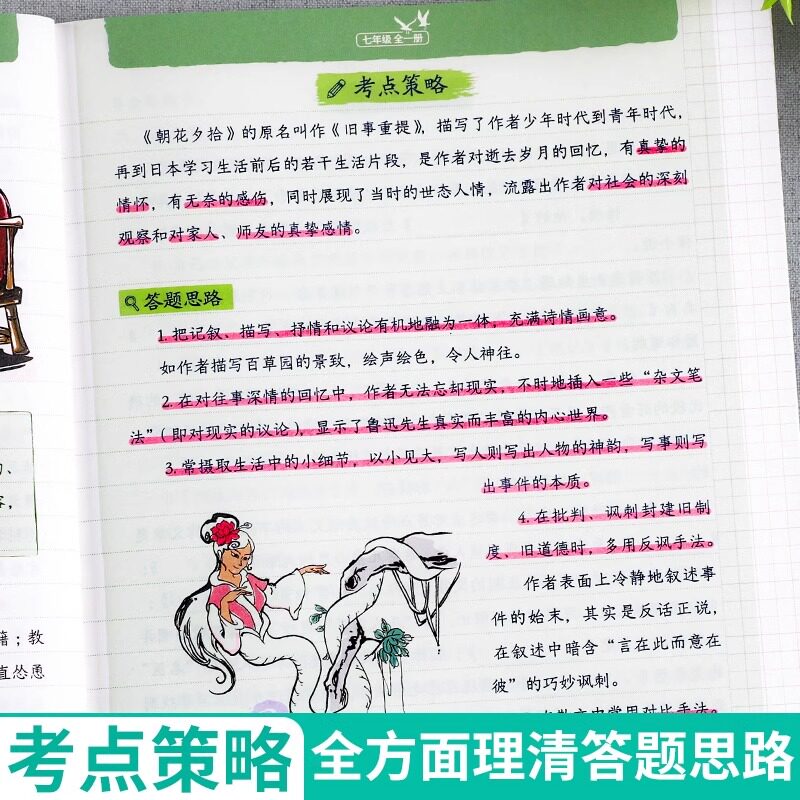 七年级 全一册
考点策略
《朝花夕拾》的原名叫作《旧事重提》，描写了作者少年时代到青年时代，
再到日本学习生活前后的若干生活片段，是作者对逝去岁月的回忆，有真挚的
情怀，有无奈的感伤，同时展现了当时的世态人情，流露出作者对社会的深刻
观察和对家人、师友的真挚感情。
答题思路
1. 把记叙、描写、抒情和议论有机地融为一体，充满诗情画意。
如作者描写百草园的景致，绘声绘色，令人神往。
2. 在对往事深情的回忆中，作者无法忘却现实，不时地插入一些“杂文笔
法”（即对现实的议论），显示了鲁迅先生真实而丰富的内心世界。
3. 常摄取生活中的小细节，以小见大，写人则写出人物的神韵，写事则写
出事件的本质。
4. 在批判、讽刺封建旧制
度、旧道德时，多用反讽手法。
作者表面上冷静地叙述事
件的始末，其实是反话正说，
在叙述中暗含“言在此而意在
彼”的巧妙讽刺。
中常用对比手法。
籍；教
直怂恿
考点策略
全方面理清答题思路